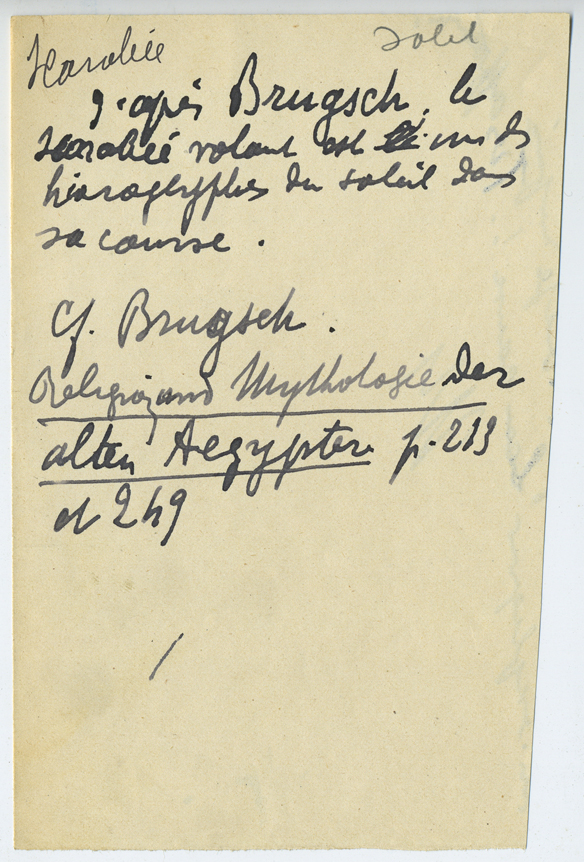 Scarabée
soleil
D'après Brugsch, le
scarabée volant est un des
hieroglyphes du soleil dans
sa course.
Cf. Brugsch.
Religion und Mythologie der
alten Aegypter p. 213
et 249